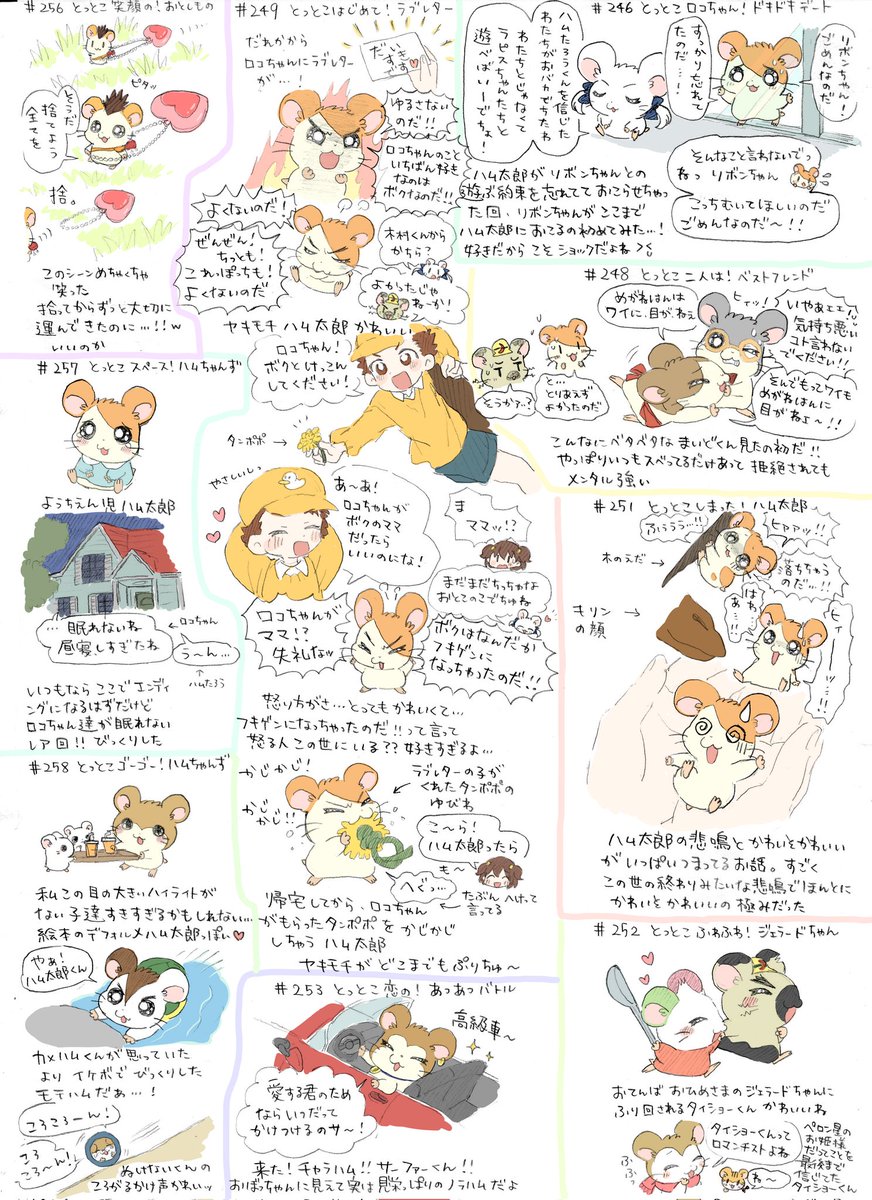 #256 とっとこ 笑顔の!おとしもの
ピタッ
そうだ
捨てよう
全てを
捨。
このシーンめちゃくちゃ
笑った
拾ってからずっと大切に
運んできたのに…!!w
いいのか
#249 とっとこはじめて!ラブレター
だれかから
ロコちゃんにラブレター
が…!
だいすき
です♡
ゆるさない
のだ!!
ロコちゃんのこと
いちばん好き
なのは
ボクなのだ!!
よくないのだ!
ぜんぜん!
ちっとも!
これっぽっちも!
よくないのだ
木村くんから
かちら?
よかったじゃ
ねーか!
ヤキモチ ハム太郎 かわいい
ロコちゃん!
ボクとけっこん
してください!
タンポポ →
そうかァ…?
と…
とりあえず
よかったのだ
やさしいしっ
あ~あ!
ロコちゃんが
ボクのママ
だったら
いいのにな!
ま
ママッ!?
まだまだちっちゃな
おとこのこでちゅね
ロコちゃんが
ママ!?
失礼なッ
ボクはなんだか
フキゲンに
なっちゃったのだ!!
怒り方がさ…とってもかわいくて…
フキゲンになっちゃったのだ!!って言って
怒る人この世にいる??好きすぎるよ…
かじかじ!
かじ
かじ!!
ラブレターの子が
くれたタンポポの
ゆびわ
こ~ら!
ハム太郎ったら
も~
へぐぅ…
← たぶんへけって
言ってる
帰宅してから、ロコちゃん
がもらったタンポポを かじかじ
しちゃう ハム太郎
ヤキモチが どこまでもぷりちゅ~
#246 とっとこ ロコちゃん!ドキドキデート
リボンちゃん!
ごめんなのだ
すっかり忘れて
たのだ…!
ハムたろうくんを信じた
わたちがおバカでちたわ
わたちとじゃなくて
ラピスちゃんたちと
遊べばいーでちょ!
そんなこと言わないでっ
ねっ リボンちゃん
こっちむいてほしいのだ
ごめんなのだ~!!
ハム太郎がリボンちゃんとの
遊ぶ約束を忘れてて おこらせちゃっ
た回、リボンちゃんがここまで
ハム太郎におこるの初めてみた…!
好きだからこそショックだよね><。
#248 とっとこ 二人は!ベストフレンド
めがねはんは
ワイに、目がねぇ
ヒィッ!
いやぁェェ!
気持ち悪い
コト言わない
でください!!
そんでもってワイも
めがねはんに
目がねぇよ~!!
こんなにベタベタな まいどくん見たの初だ!!
やっぱりいつもスベってるだけあって 拒絶されても
メンタル強い
#257 とっとこ スペース!ハムちゃんず
ようちえん児ハム太郎
…眠れないね
昼寝しすぎたね
←ロコちゃん
うーん…
↑
ハムたろう
いつもなら ここで エンディ
ングになるはずだけど
ロコちゃん達が眠れない
レア回!!びっくりした
#251 とっとこしまった!ハム太郎
ヒァァッ!!
木のえだ →
落ちちゃう
のだ…!!
キリン
の顔 →
はわ
あ…!!
#258 とっとこゴーゴー!ハムちゃんず
私この目の大きいハイライトが
ない子達すきすぎるかもしれない…
絵本のデフォルメハム太郎っぽい♥
やぁ!
ハム太郎くん
カメハムくんが思っていた
より イケボで びっくりした
モテハムだぁ…!
ころころーん!
ころ
ころ~ん!
ぬけないくんの
ころがるかけ声かわいッ
ハム太郎の悲鳴とかわいとかわいい
がいっぱいつまってるお話。すごく
この世の終わりみたいな悲鳴でほんとに
かわいとかわいいの極みだった
#253 とっとこ 恋の!あつあつバトル
高級車~
愛する君のため
ならいつだって
かけつけるのサ~!
来た!チャラハム!!サーファーくん!!
おぼっちゃんに見えて実は見栄っぱりのノラハムだよ
#252 とっとこ ふわふわ!ジェラードちゃん
おてんば おひめさまのジェラードちゃんに
ふり回されるタイショーくん かわいいね
ふふっ
タイショーくんって
ロマンチストよね
ね~
ペロン星の
お姫様
だってことを
最後まで
信じてた
タイショーくん